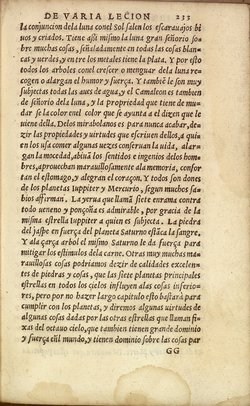 DE VARIA LECION 233
la conjuncion dela luna conel sol salen los escarauajos bi
uos y criados. Tiene assi mismo la luna gran señorio so
bre muchas cosas, señaladamente en todas las cosas blan
cas y uerdes, y entre los metales tiene la plata. Y por esto
todos los arboles conel crescer o menguar dela luna reco
gen o alargan el humor y fuerça. Y tambiẽ le son muy
subjectas todas las aues de agua, y el Camaleon es tambien
de señorio dela luna, y la propriedad que tiene de mu-
dar se la color enel color que se ayunta a el dizen que le
uiene della. Delos mirabolanos es para nunca acabar, de
zir las propiedades y uirtudes que escriuen dellos, a quien
los usa comer algunas uezes conseruan la uida, alar-
gan la mocedad, abiuã los sentidos e ingenios delos hom-
bres, aprouechan marauillosamente ala memoria, confor
tan el estomago, y alegran el coraçon. Y todos son dones
de los planetas Iuppiter y Mercurio, segun muchos sa-
bios affirman. La yerua que llamã siete enrama contra
todo ueneno y ponçoña es admirable, por gracia de la
misma estrella Iuppiter a quien es subjecta. La piedra
del jaspe en fuerça del planeta Saturno estãca la sangre.
Y ala çarça arbol el mismo Saturno le da fuerça para
mitigar los estimulos dela carne. Otras muy muchas ma
rauillosas cosas podriamos dezir de calidades excelen-
tes de piedras y cosas, que las siete planetas principales
estrellas en todos los cielos influyen alas cosas inferio-
res, pero por no hazer largo capitulo esto bastarà para
cumplir con los planetas, y diremos algunas uirtudes de
algunas cosas dadas por las otras estrellas que llaman fi-
xas del octauo cielo, que tambien tienen grande dominio
y fuerça enl mundo, y tienen dominio sobre las cosas par
GG